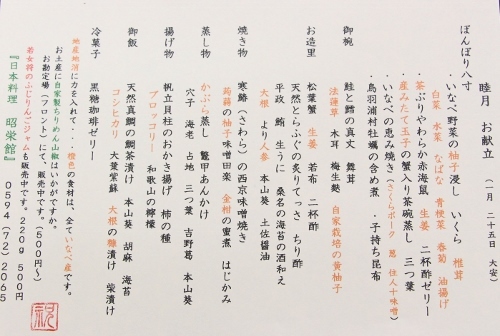 睦月　お献立　（一月　二十五日　大安）
ぼんぼり八寸
・いなべ野菜の柚子浸し　いくら　椎茸
白菜　水菜　なばな　青梗菜　春菊　油揚げ
・茶ぶりやわらか赤海鼠　生姜　二杯酢ゼリー
・産みたて玉子の蟹入り茶碗蒸し　三つ葉
・いなべの恵み焼き（さくらポーク　葱　住人十味噌）
・鳥羽浦村牡蠣の含め煮　・子持ち昆布
御椀　鮭と鱈の真丈　舞茸
法蓮草　木耳　梅生麩　自家栽培の黄柚子
お造里　松葉蟹　生姜　若布　二杯酢
天然とらふぐの炙りてっさ　ちり酢
平政　鮪　生うに　桑名の海苔の酒和え
大根　より人参　本山葵　土佐醤油
焼き物　寒鰆（さわら）の西京味噌焼き
蒟蒻の柚子味噌田楽　金柑の蜜煮　はじかみ
蒸し物　かぶら蒸し　鼈甲あんかけ
穴子　海老　占地　三つ葉　吉野葛　本山葵
揚げ物　帆立貝柱のおかき揚げ　柿の種
ブロッコリー　和歌山の檸檬
御飯　天然真鯛の鯛茶漬け　本山葵　胡麻　海苔
コシヒカリ　大葉紫蘇　大根の糠漬け　柴漬け
冷菓子　黒糖珈琲ゼリー
地産地消に力を入れて・・・橙色の食材は、全ていなべ産です。
お土産に自家製ちりめん山椒はいかがですか。
お勘定場（フロント）にて、販売中です。（500円〜）
若女将のふじりんごジャムも販売中です。220g　500円
『日本料理　昭栄館』　0594（72）2065